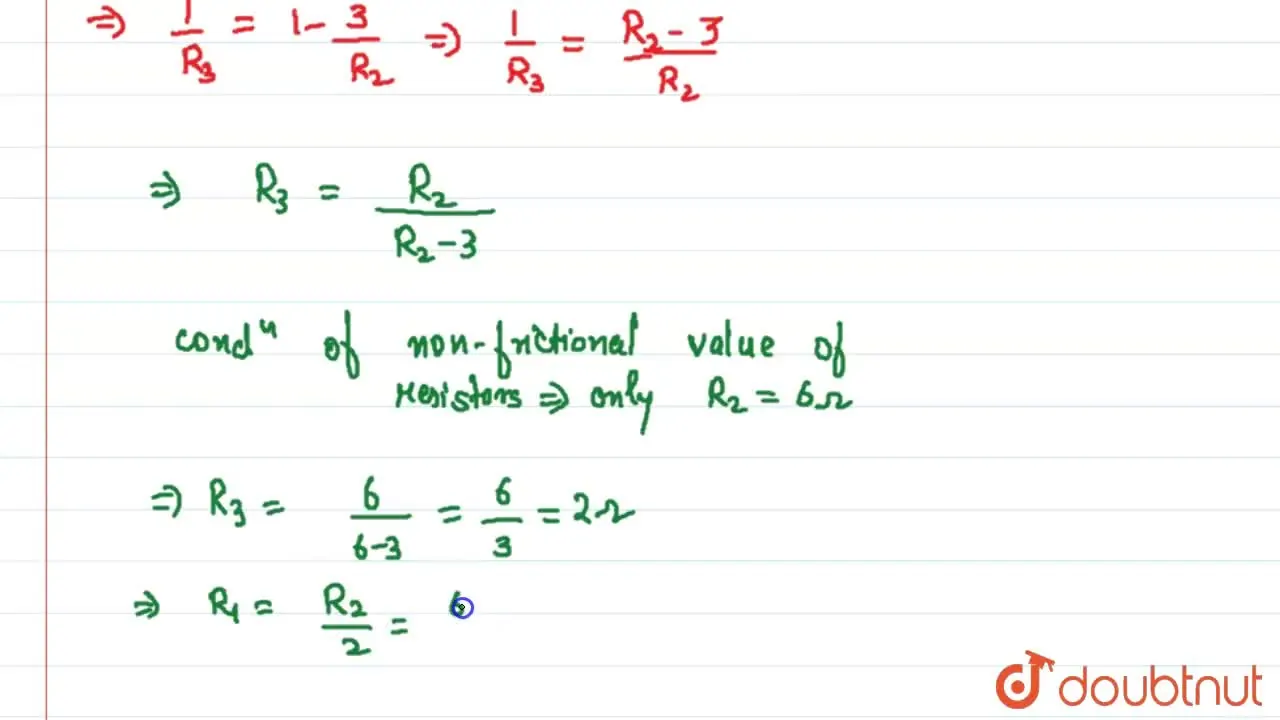 ⇒ 1/R₃ = 1 - 3/R₂ ⇒ 1/R₃ = (R₂ - 3)/R₂
⇒ R₃ = R₂/(R₂ - 3)
condⁿ of non-frictional value of
resistors ⇒ only R₂ = 6Ω
⇒ R₃ = 6/(6-3) = 6/3 = 2Ω
⇒ R₁ = R₂/2 = 6
doubtnut